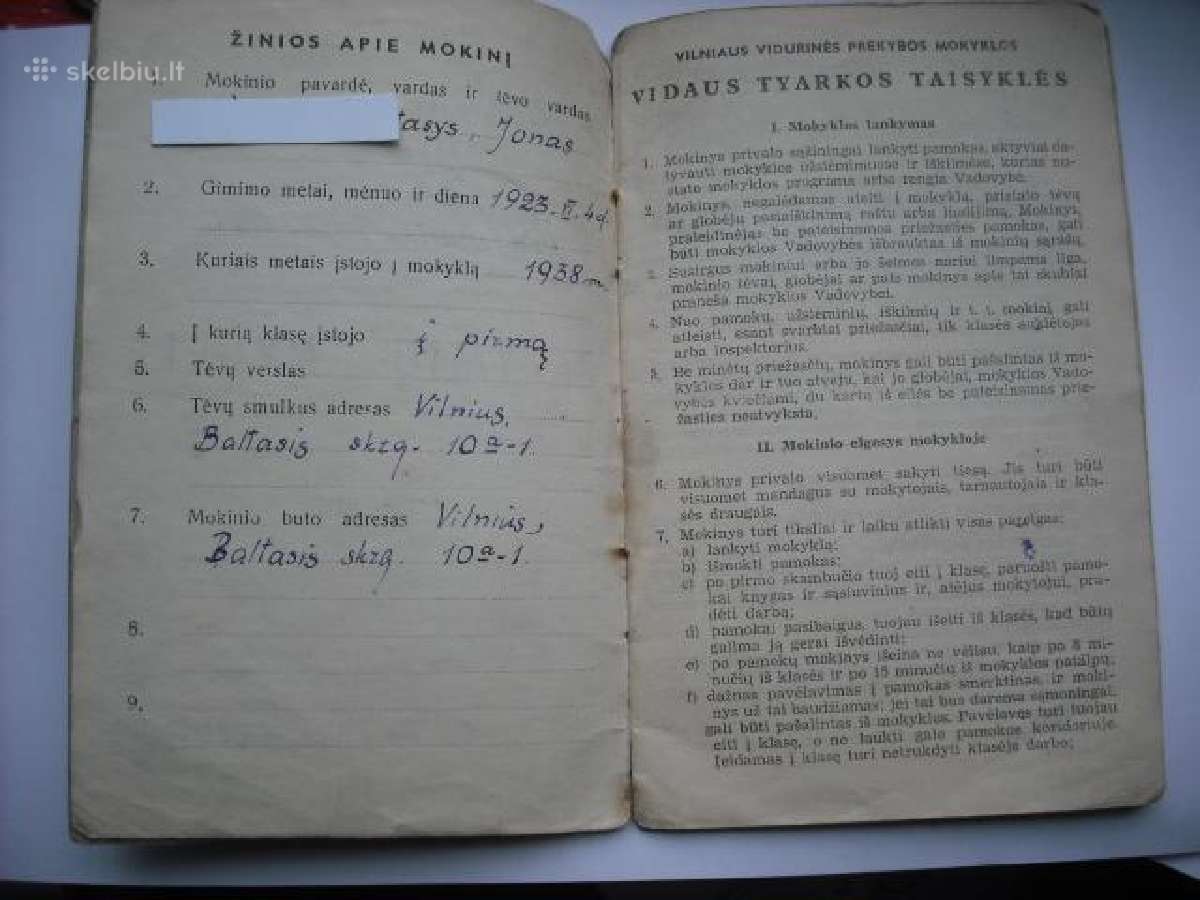 skelbiu.lt
ŽINIOS APIE MOKINĮ
1. Mokinio pavardė, vardas ir tėvo vardas
tasys, Jonas
2. Gimimo metai, mėnuo ir diena 1923-II-4d.
3. Kuriais metais įstojo į mokyklą 1938 m.
4. Į kurią klasę įstojo į pirmą
5. Tėvų verslas
6. Tėvų smulkus adresas Vilnius,
Baltasis skrg. 10a-1.
7. Mokinio buto adresas Vilnius,
Baltasis skrg. 10a-1.
8.
9.
VILNIAUS VIDURINĖS PREKYBOS MOKYKLOS
VIDAUS TVARKOS TAISYKLĖS
I. Mokyklos lankymas
1. Mokinys privalo sąžiningai lankyti pamokas, aktyviai da-
lyvauti mokyklos užsiėmimuose ir iškilmėse, kurias nu-
stato mokyklos programa arba rengia Vadovybė.
2. Mokinys, negalėdamas ateiti į mokyklą, pristato tėvų
ar globėjų pasiaiškinimą raštu arba liudijimą. Mokinys,
praleidinėjąs be pateisinamos priežasties pamokas, gali
būti mokyklos Vadovybės išbrauktas iš mokinių sąrašų.
3. Susirgus mokiniui arba jo šeimos nariui limpama liga,
mokinio tėvai, globėjai ar pats mokinys apie tai skubiai
praneša mokyklos Vadovybei.
4. Nuo pamokų, užsiėmimų, iškilmių ir t. t. mokinį gali
atleisti, esant svarbiai priežasčiai, tik klasės auklėtojas
arba inspektorius.
5. Be minėtų priežasčių, mokinys gali būti pašalintas iš mo-
kyklos dar ir tuo atveju, kai jo globėjai, mokyklos Vado-
vybės kviečiami, du kartu iš eilės be pateisinamos prie-
žasties neatvyksta.
II. Mokinio elgesys mokykloje
6. Mokinys privalo visuomet sakyti tiesą. Jis turi būti
visuomet mandagus su mokytojais, tarnautojais ir kla-
sės draugais.
7. Mokinys turi tiksliai ir laiku atlikti visas pareigas:
a) lankyti mokyklą;
b) išmokti pamokas;
c) po pirmo skambučio tuoj eiti į klasę, paruošti pamo-
kai knygas ir sąsiuvinius ir, atėjus mokytojui, pra-
dėti darbą;
d) pamokai pasibaigus, tuojau išeiti iš klasės, kad būtų
galima ją gerai išvėdinti;
e) po pamokų mokinys išeina ne vėliau, kaip po 5 mi-
nučių iš klasės ir po 15 minučių iš mokyklos patalpų;
f) dažnas pavėlavimas į pamokas smerktinas, ir moki-
nys už tai baudžiamas; jei tai bus daroma sąmoningai,
gali būti pašalintas iš mokyklos. Pavėlavęs turi tuojau
eiti į klasę, o ne laukti galo pamokos koridoriuje.
Įeidamas į klasę turi netrukdyti klasėje darbo;